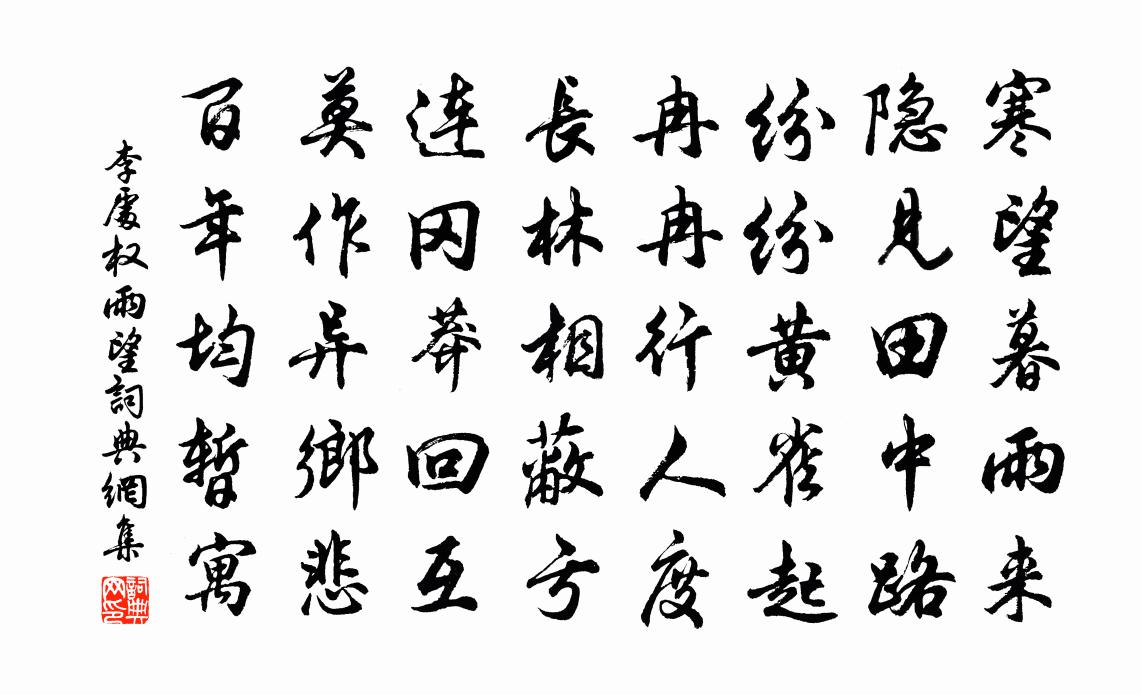 寒望暮雨来
隐见田中路
纷纷黄雀起
冉冉行人度
長林相蔽亏
連冈莽回互
莫作异鄉悲
百年均暫寓
李處权雨望詞典網集
詞典网印